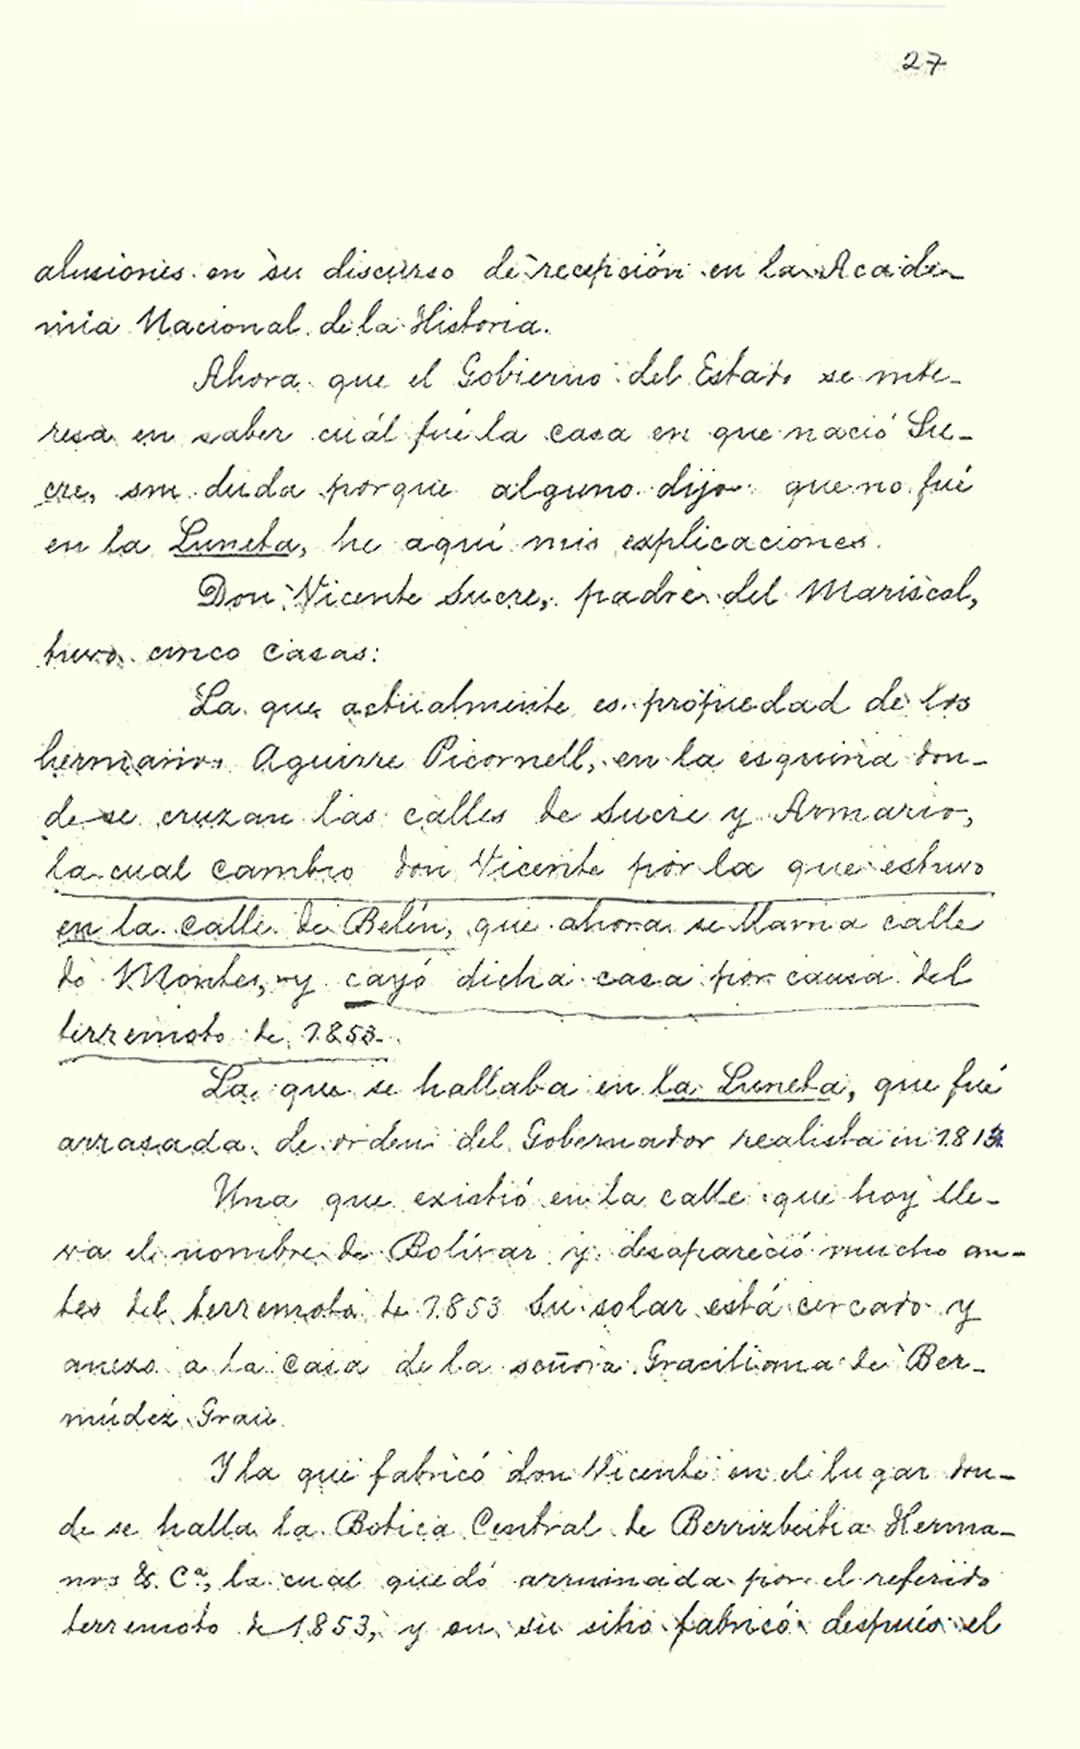 27
alusiones en su discurso de recepción en la Acade-
mia Nacional de la Historia.
Ahora que el Gobierno del Estado se inte-
resa en saber cuál fué la casa en que nació Su-
cre, sin duda porque alguno dijo que no fué
en la Luneta, he aquí mis explicaciones.
Don Vicente Sucre, padre del Mariscal,
tuvo cinco casas:
La que actualmente es propiedad de los
hermanos Aguirre Picornell, en la esquina don-
de se cruzan las calles de Sucre y Armario,
la cual cambio don Vicente por la que estuvo
en la calle de Belén, que ahora se llama calle
de Montes, y cayó dicha casa por causa del
terremoto de 1853.
La que se hallaba en la Luneta, que fué
arrasada de orden del Gobernador realista en
Una que existió en la calle que hoy lle-
va el nombre de Bolívar y desapareció mucho an-
tes del terremoto de 1853 Su solar está cercado y
anexo a la casa de la señora Graciliana de Ber-
múdez Grau
Y la que fabricó don Vicente en el lugar don-
de se halla la Botica Central de Berrizbeitia Herma-
nos & Cª, la cual quedó arruinada por el referido
terremoto de 1853, y en su sitio fabricó después el